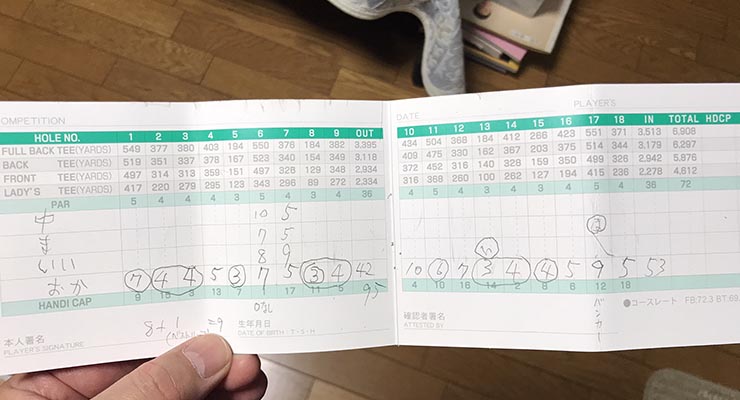 COMPETITION
DATE
PLAYER'S
HOLE NO. 1 2 3 4 5 6 7 8 9 OUT
10 11 12 13 14 15 16 17 18 IN TOTAL HDCP
FULL BACK TEE(YARDS) 549 377 380 403 194 550 376 184 382 3,395
434 504 368 184 412 266 423 551 371 3,513 6,908
BACK TEE(YARDS) 519 351 337 378 167 523 340 154 349 3,118
409 475 330 514 344 3,179 6,297
FRONT TEE(YARDS) 497 314 313 359 151 497 328 129 346 2,934
372 452 316 140 328 159 350 499 326 2,942 5,876
LADY'S TEE(YARDS) 417 220 279 295 123 343 296 89 272 2,334
316 368 260 100 262 127 194 415 236 2,278 4,612
PAR 5 4 4 4 3 4 36
4 5 4 3 4 5 4 36 72
中 10 5
ま 7 5
しいい 8 9
おか 7 4 4 5 3 7 5 3 4 42
10 6 7 3 4 4 5 9 5 53
い
ま
95
HANDI CAP 9 3 13 7 1 17 11 5
4 10 14 2 6 12 18
0なし
バンカー
8+1=9
本人署名
PLAYER'S SIGNATURE
生年月日
DATE OF BIRTH : T・S・H
確認者署名
ATTESTED BY
●コースレート FB:72.3 BT:69.